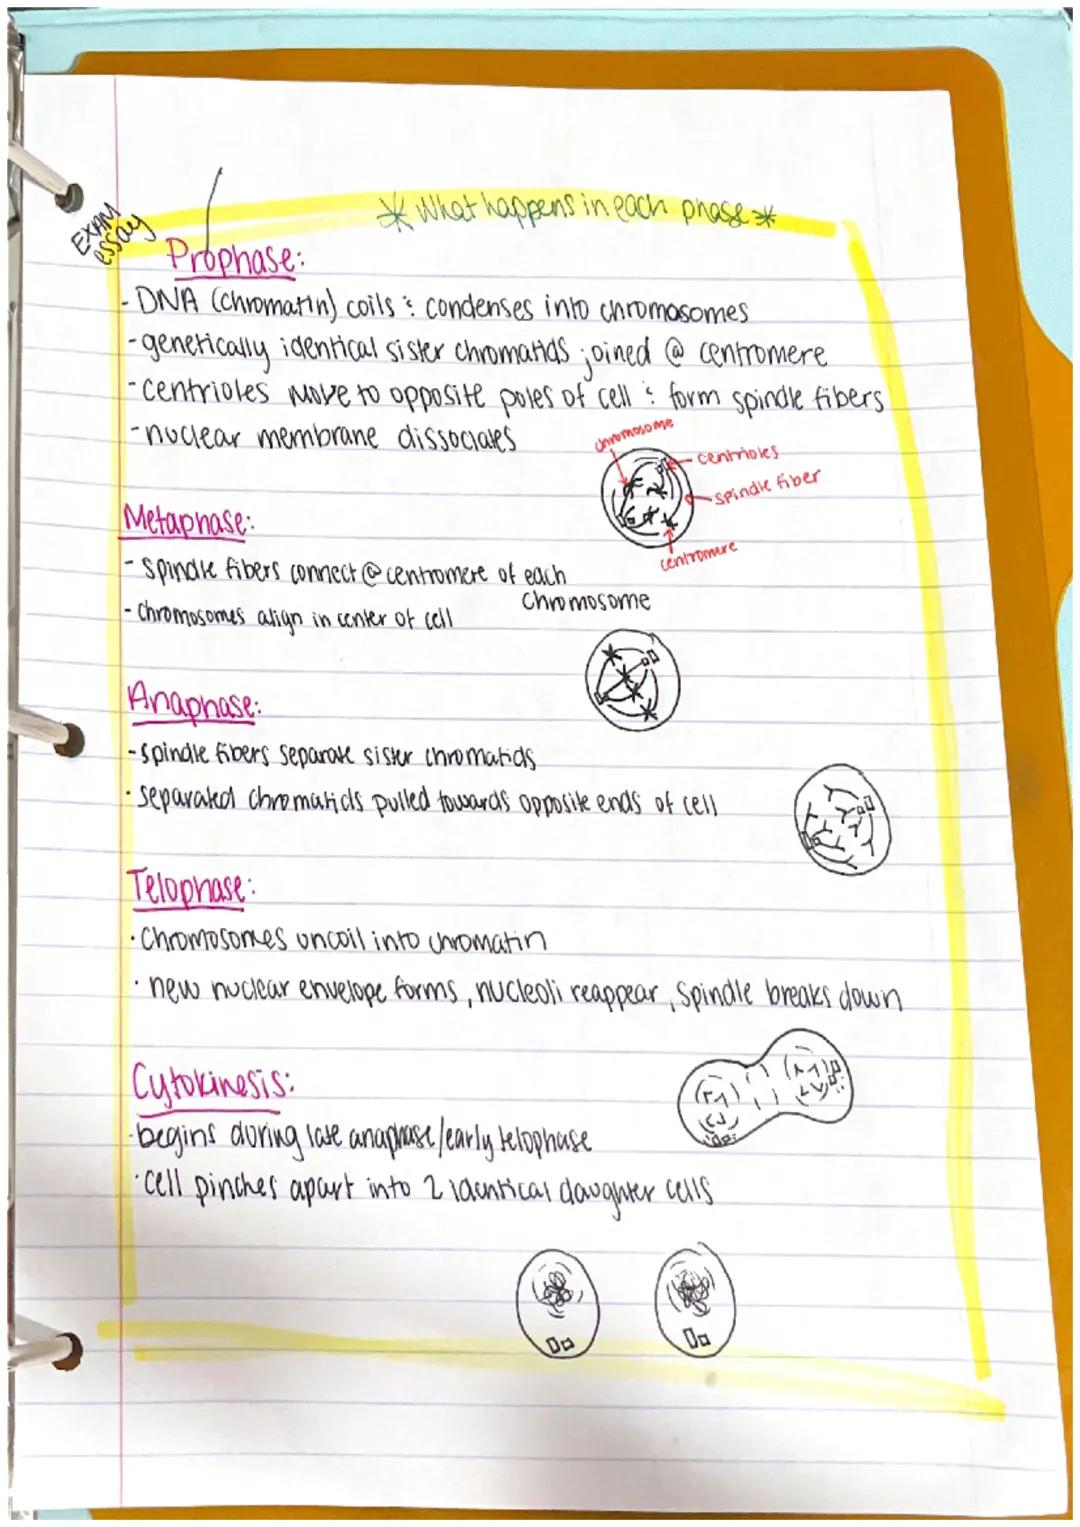 EXAM
essay
* What happens in each phase *
Prophase:
- DNA (chromatin) coils & condenses into chromosomes
- genetically identical sister chromatids joined @ centromere
- centrioles move to opposite poles of cell & form spindle fibers
- nuclear membrane dissociates
chromosome
centrioles
spindle fiber
centromere
Metaphase:
- spindle fibers connect @ centromere of each
chromosome
- chromosomes align in center of cell
Anaphase:
- spindle fibers separate sister chromatids
· separated chromatids pulled towards opposite ends of cell
Telophase:
· Chromosomes uncoil into chromatin
· new nuclear envelope forms, nucleoli reappear, spindle breaks down
Cytokinesis:
· begins during late anaphase/early telophase
· cell pinches apart into 2 identical daughter cells